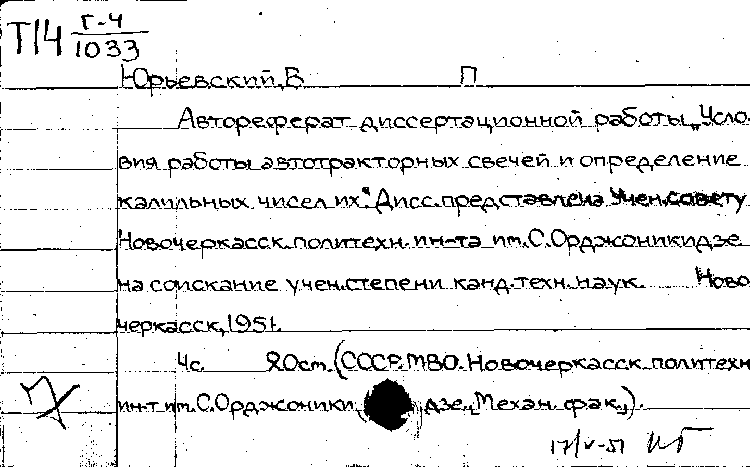 Т14 Г-4
1033
Юрьевский, В П
Автореферат диссертационной работы „Усло-
вия работы автотракторных свечей и определение
калильных чисел их". Дисс. представлена Учен. совету
Новочеркасск. политехн. ин-та им. С. Орджоникидзе
на соискание учен. степени канд. техн. наук. Ново
черкасск, 1951.
4с. 20см. (СССР. МВО. Новочеркасск. политехн
ин-т им. С. Орджоники дзе, Механ. фак.,).
17/V-51